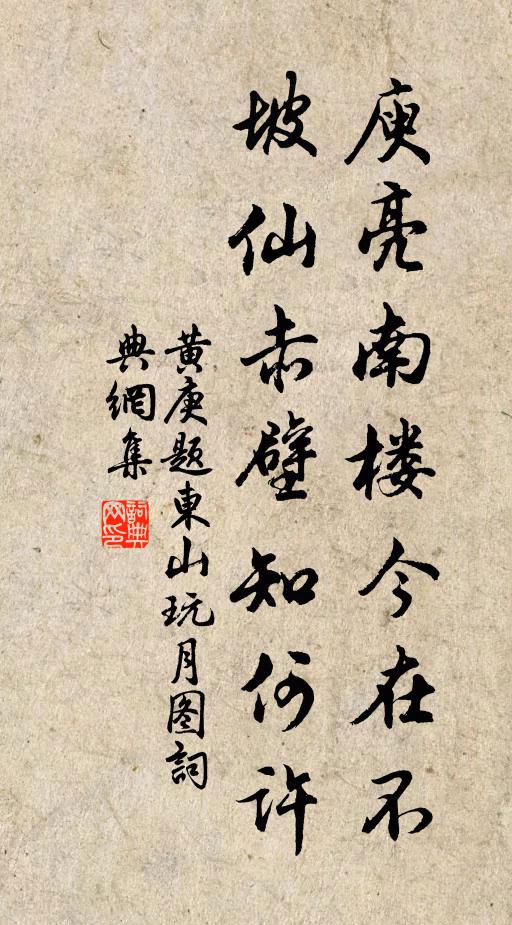 庾亮南楼今在不
坡仙赤壁知何许
黄庚题東山玩月图詞
典網集
詞典网印